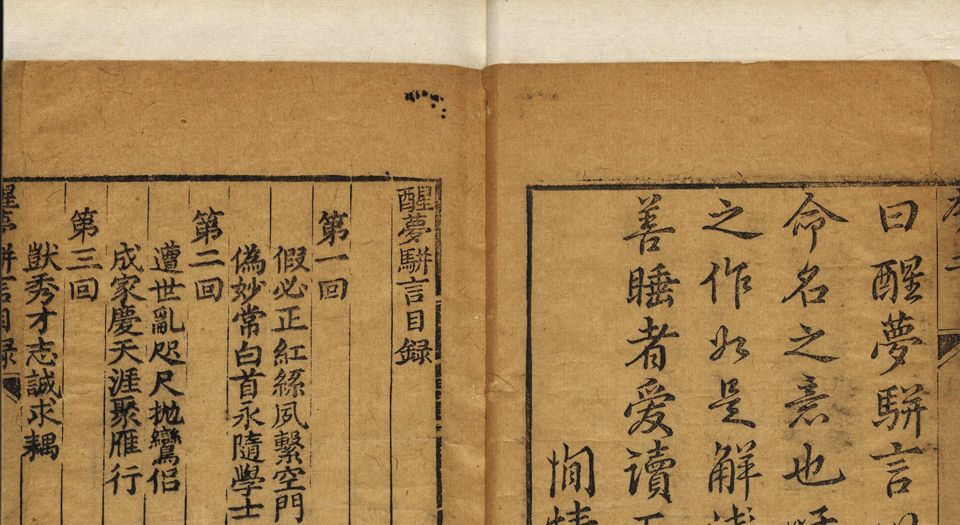 曰醒夢駢言
命名之意也
之作如是解
善睡者爱讀
醒夢駢言目錄
第一回
假必正紅絲夙繫空門
偽妙常白首永隨學士
第二回
遭世亂咫尺抛鸞侣
成家慶天涯聚雁行
第三回
獃秀才志誠求耦
醒夢駢言目録